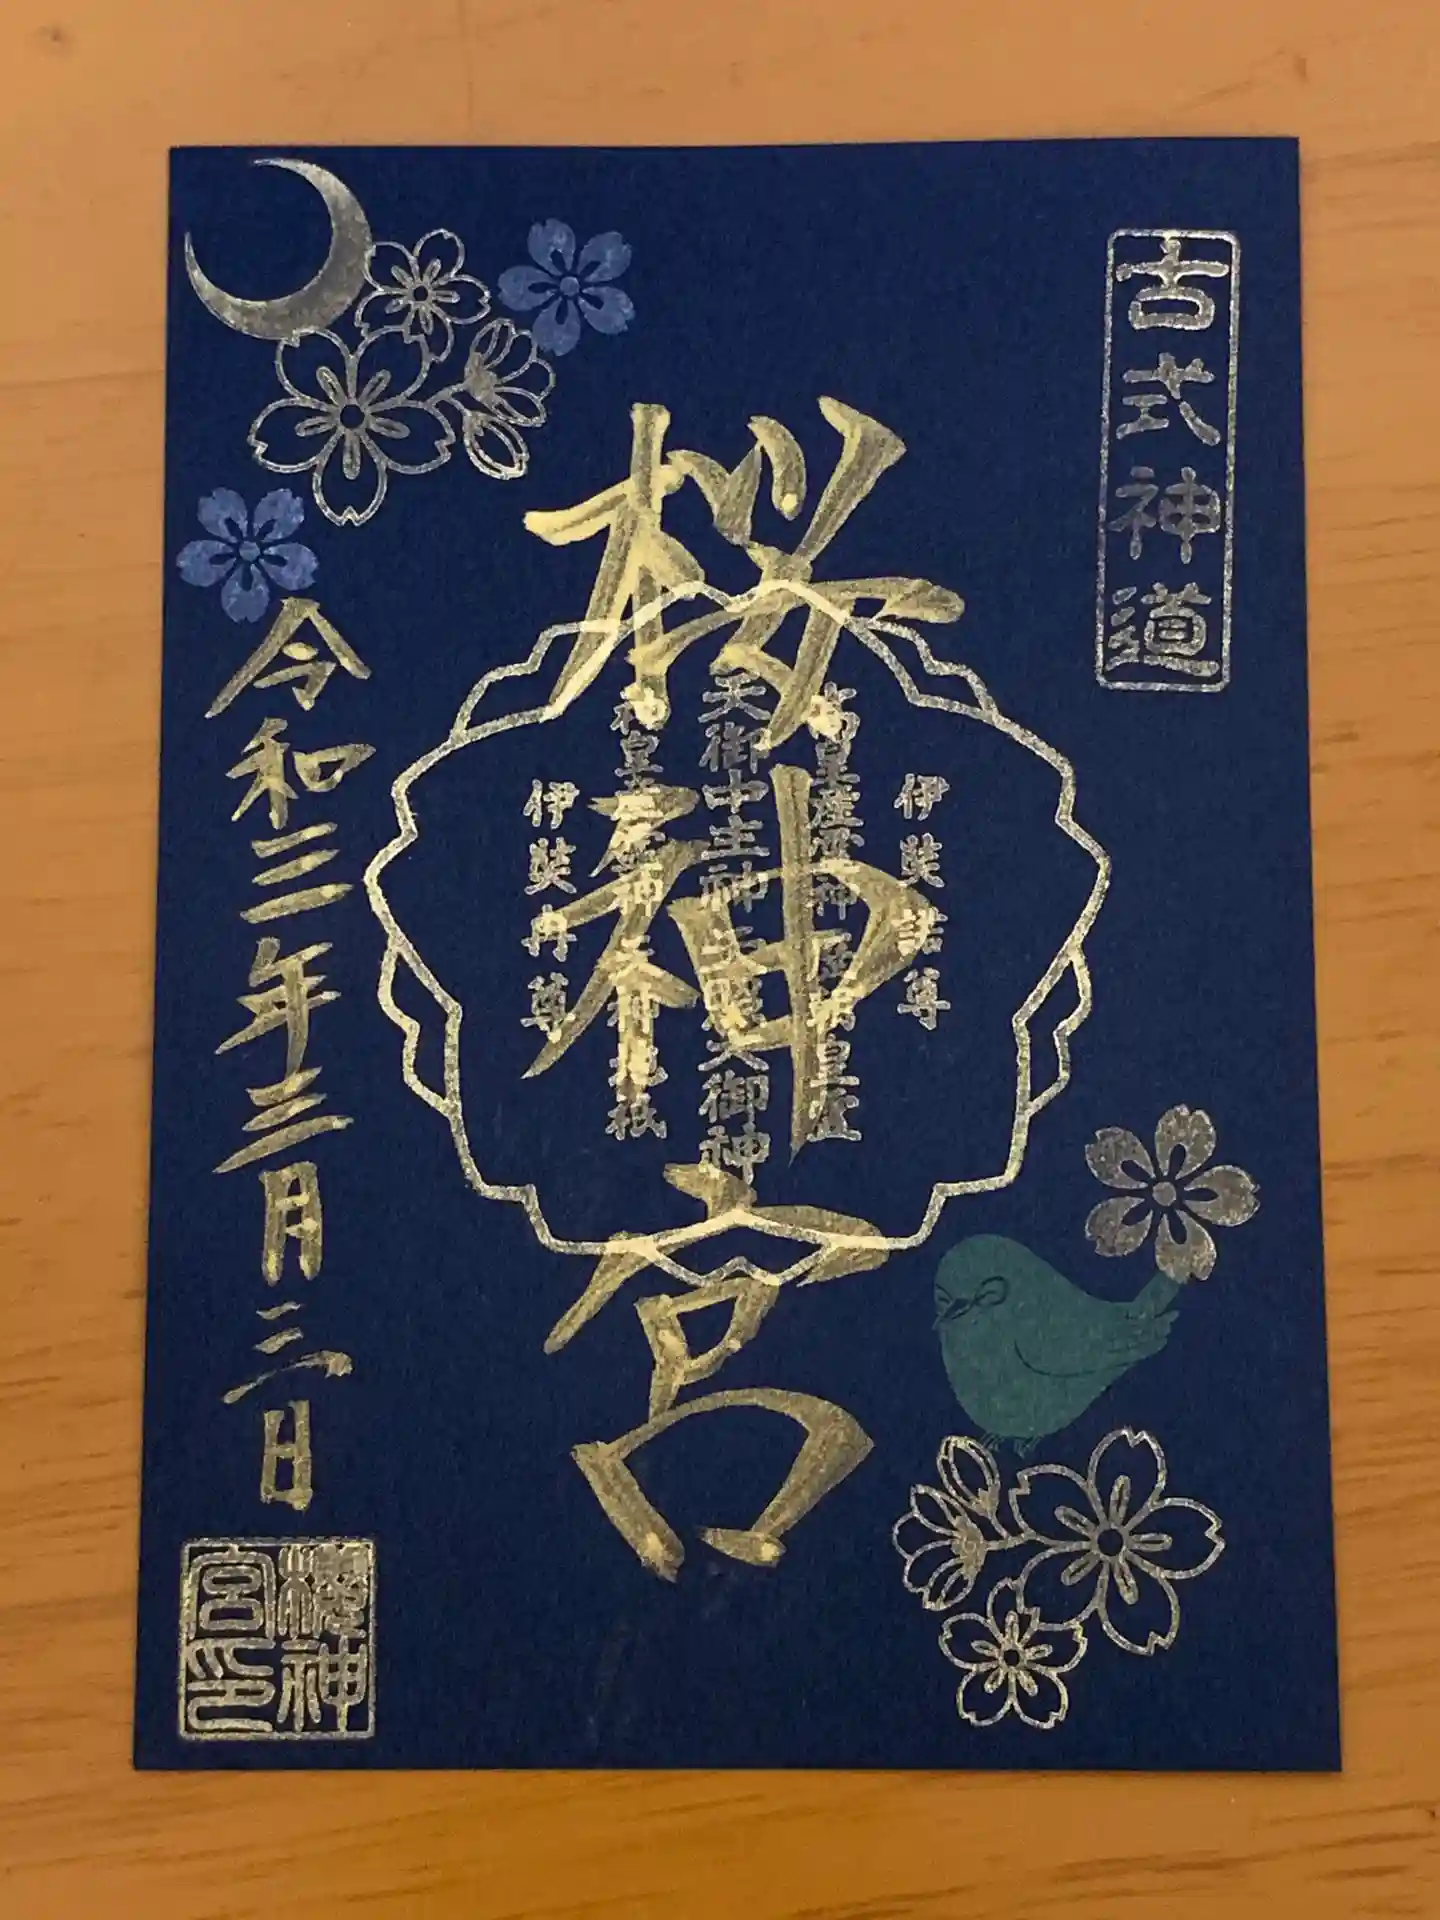 古式神道
桜神宮
伊弉諾尊
高皇産霊神 歴朝皇霊
天御中主神 天照大御神
神皇産霊神 天神地祇
伊弉冉尊
令和三年三月三日
櫻神宮印